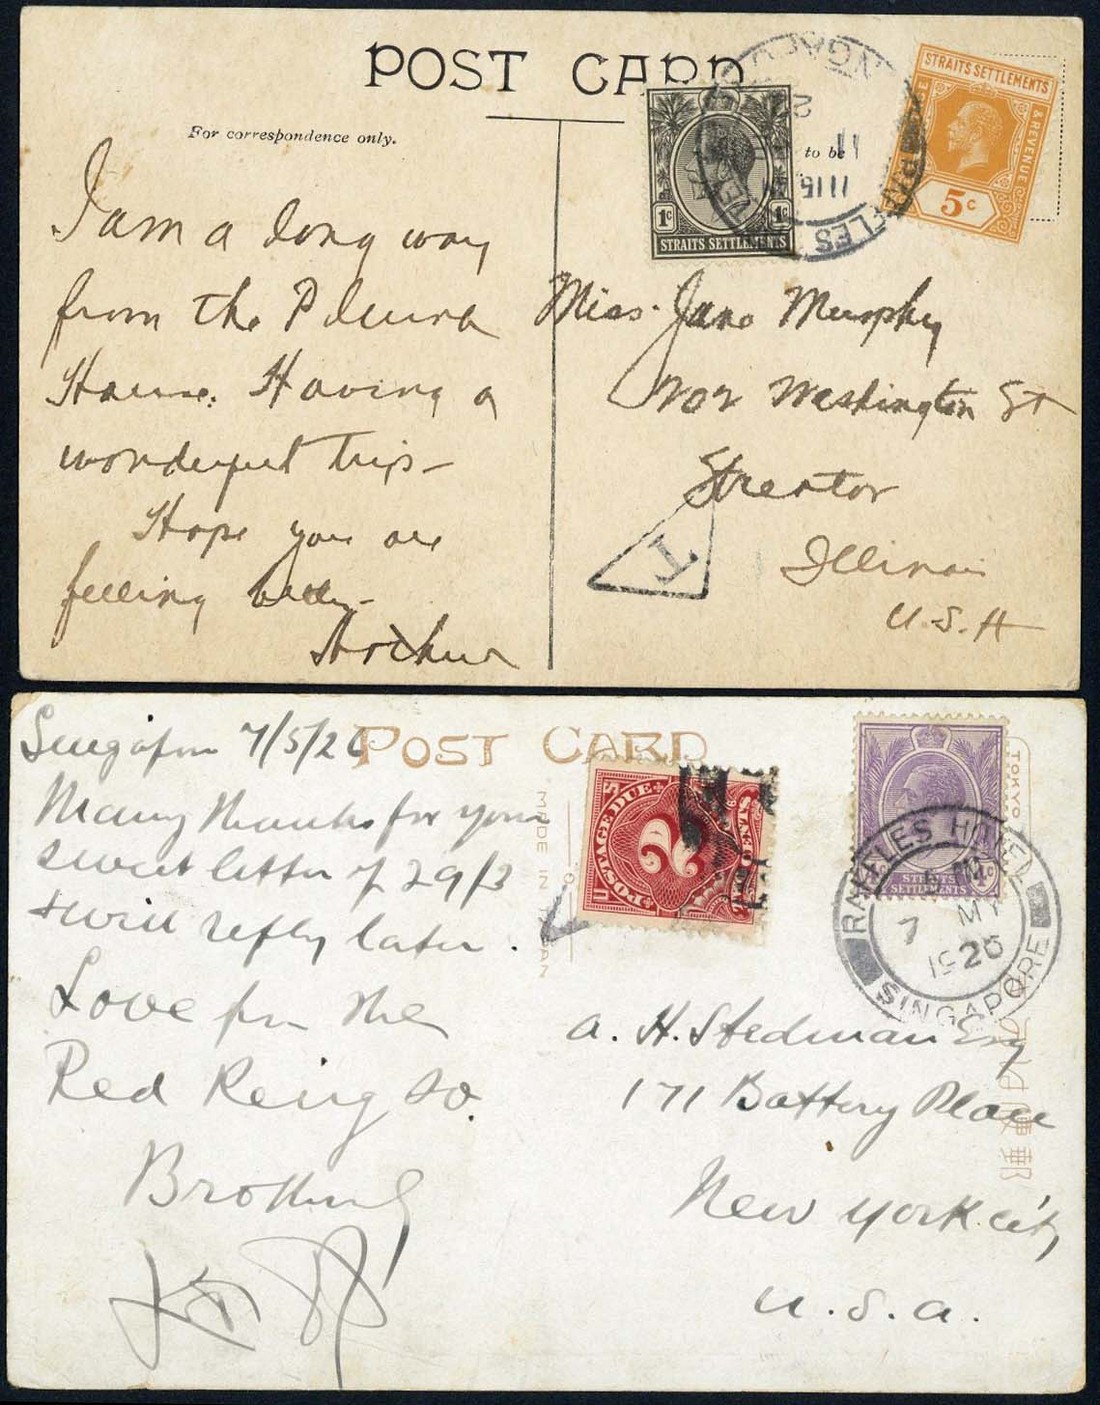 POST CARD
For correspondence only.
to be
STRAITS SETTLEMENTS
& REVENUE
5c
1c 1c
STRAITS SETTLEMENTS
I am a long way
from the Plumb
House. Having a
wonderful trip –
Hope you are
feeling well –
Arthur
Miss Jane Murphy
Washington St
Streator
Illinois
U.S.A
T
POST CARD
Singapore 7/5/26
Many thanks for your
sweet letter of 29/3
& will reply later.
Love from the
Red Reing so.
MADE IN JAPAN
POSTAGE DUE
2
TOKYO
STRAITS
SETTLEMENTS
RAFFLES HOTEL
7 MY
1926
SINGAPORE
A. H. Stedman Esq
171 Battery Place
New York City
U.S.A.